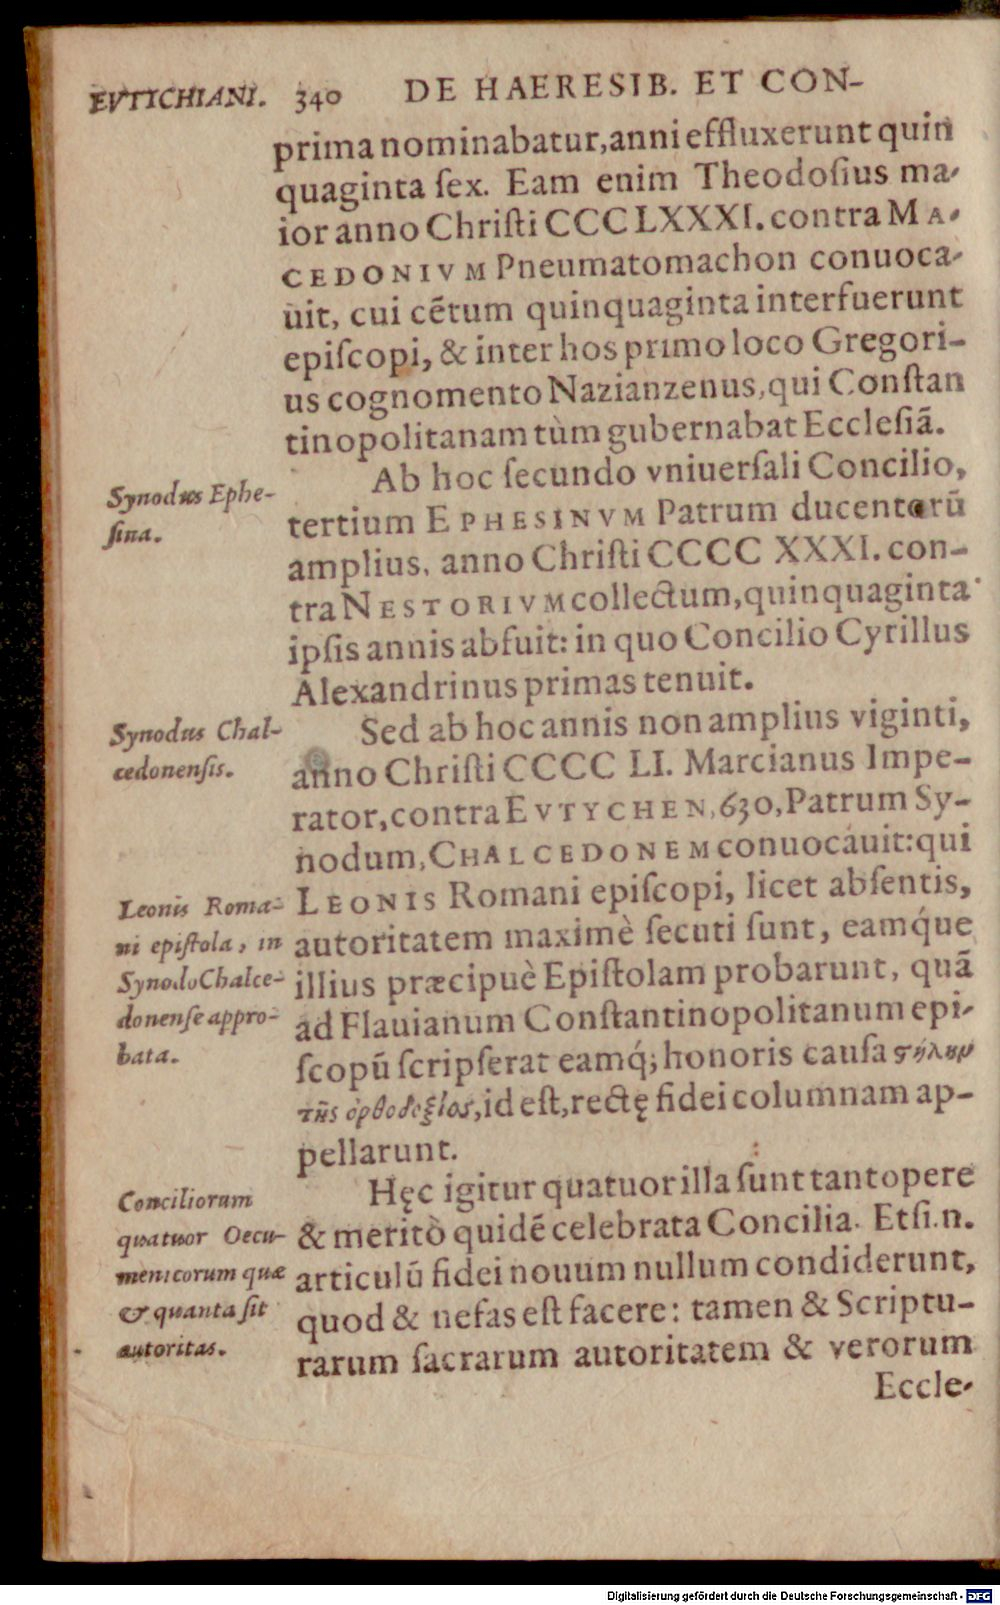 EVTICHIANI. 340 DE HAERESIB. ET CON-
prima nominabatur, anni effluxerunt quin
quaginta ſex. Eam enim Theodoſius ma-
ior anno Chriſti CCC LXXXI. contra MA-
CEDONIVM Pneumatomachon conuoca-
uit, cui cẽtum quinquaginta interfuerunt
epiſcopi, & inter hos primo loco Gregori-
us cognomento Nazianzenus, qui Conſtan
tinopolitanam tùm gubernabat Eccleſiã.
Ab hoc ſecundo vniuerſali Concilio,
Synodus Ephe-
ſina.
tertium EPHESINVM Patrum ducentorũ
amplius, anno Chriſti CCCC XXXI. con-
tra NESTORIVM collectum, quinquaginta
ipſis annis abfuit: in quo Concilio Cyrillus
Alexandrinus primas tenuit.
Sed ab hoc annis non amplius viginti,
Synodus Chal-
cedonenſis.
anno Chriſti CCCC LI. Marcianus Impe-
rator, contra EVTYCHEN, 630, Patrum Sy-
nodum, CHALCEDONEM conuocauit: qui
LEONIS Romani epiſcopi, licet abſentis,
Leonis Roma-
ni epiſtola, in
Synodo Chalce-
donenſe appro-
bata.
autoritatem maximè ſecuti ſunt, eamq́ue
illius præcipuè Epiſtolam probarunt, quã
ad Flauianum Conſtantinopolitanum epi-
ſcopũ ſcripſerat eamq́; honoris cauſa ςήλην
τῆς ὀρθοδοξίας, id eſt, rectę fidei columnam ap-
pellarunt.
Hęc igitur quatuor illa ſunt tantopere
Conciliorum
quatuor Oecu-
menicorum quæ
& quanta ſit
autoritas.
& meritò quidẽ celebrata Concilia. Etſi.n.
articulũ fidei nouum nullum condiderunt,
quod & nefas eſt facere: tamen & Scriptu-
rarum ſacrarum autoritatem & verorum
Eccle-
Digitalisierung gefördert durch die Deutsche Forschungsgemeinschaft - DFG